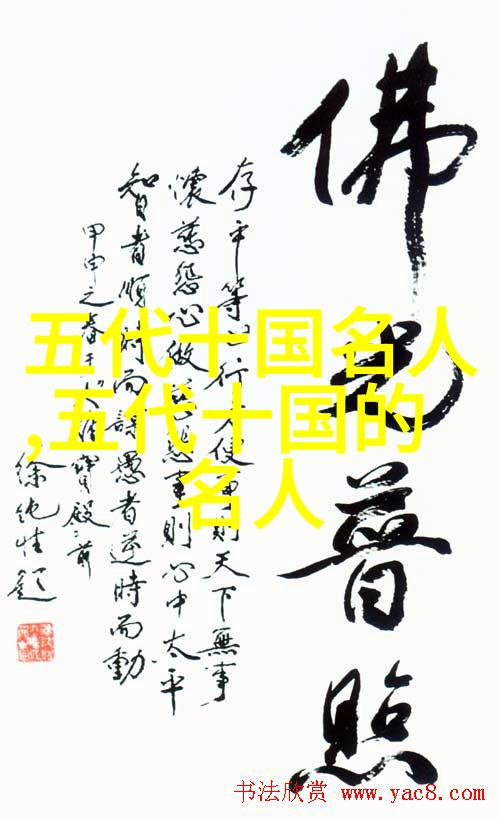 佛光普照
存平等心行方便事則天下無事
懷慈悲心做慈悲事則心中太平
智者順時而謀愚者逆時而動
甲申之春于大雄寶殿之前
徐題
五代十国名人
,五代十国的
名人
书法欣赏 www.yac8.com